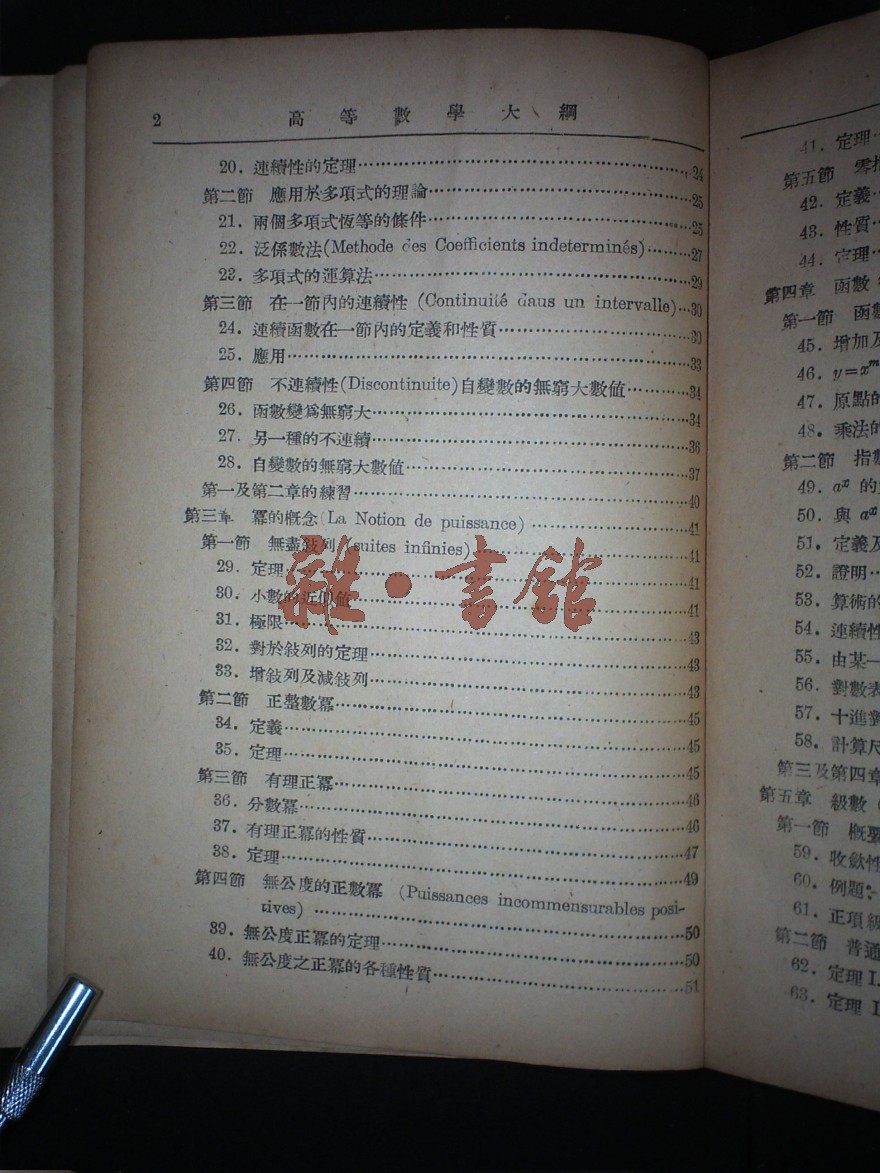 2 高等數學大綱
20. 連續性的定理……24
第二節 應用於多項式的理論……25
21. 兩個多項式恆等的條件……25
22. 泛係數法(Methode des Coefficients indeterminés)……27
23. 多項式的運算法……29
第三節 在一節內的連續性 (Continuité daus un intervalle)…30
24. 連續函數在一節內的定義和性質……30
25. 應用……33
第四節 不連續性(Discontinuite)自變數的無窮大數值……34
26. 函數變爲無窮大……34
27. 另一種的不連續……36
28. 自變數的無窮大數值……37
第一及第二章的練習……40
第三章 冪的概念(La Notion de puissance)……41
第一節 無盡敍列 (suites infinies)……41
29. 定理……41
30. 小數的近似值……41
31. 極限……43
32. 對於敍列的定理……43
33. 增敍列及減敍列……43
第二節 正整數冪……45
34. 定義……45
35. 定理……45
第三節 有理正冪……46
36. 分數冪……46
37. 有理正冪的性質……47
38. 定理……49
第四節 無公度的正數冪 (Puissances incommensurables posi-
tives)……50
39. 無公度正冪的定理……50
40. 無公度之正冪的各種性質……51
雜·書館
41. 定理
第五節
42. 定義
43. 性質
44. 定理
第四章 函數
第一節
45. 增加及
46. y=x^m
47. 原點的
48. 乘法的
第二節 指數
49. a^x 的
50. 與 a^x
51. 定義及
52. 證明
53. 算術的
54. 連續性
55. 由某一
56. 對數表
57. 十進對
58. 計算尺
第三及第四章
第五章 級數
第一節 概要
59. 收斂性
60. 例題
61. 正項級
第二節 普通
62. 定理 I.
63. 定理